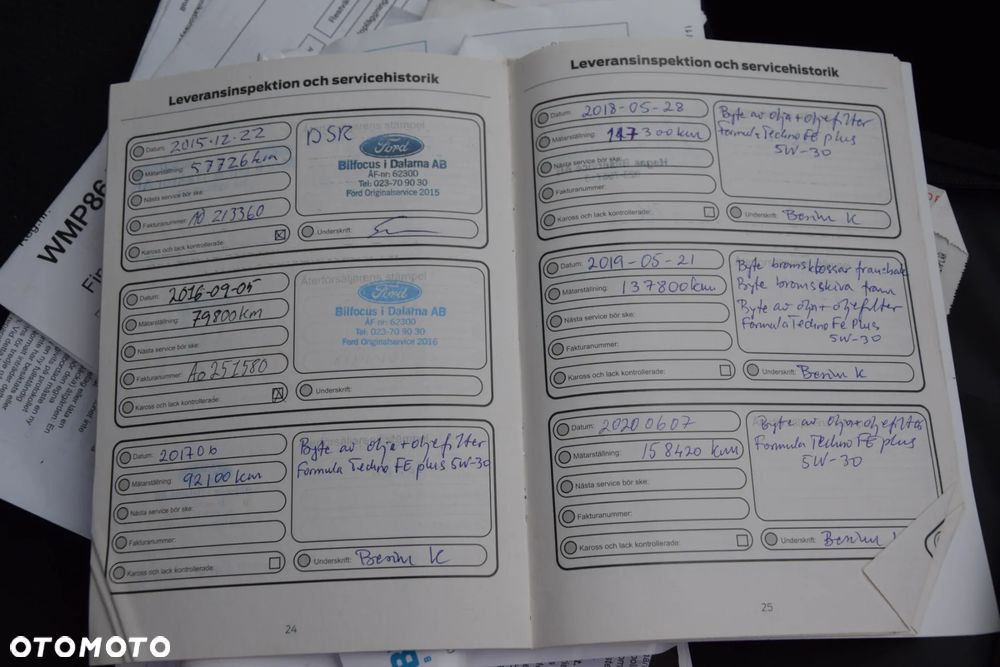 Leveransinspektion och servicehistorik
Datum: 2015-12-22
Mätarställning: 57726 km
Nästa service bör ske:
Fakturanummer: AO 213360
Kaross och lack kontrollerade:
DSR
Ford
Bilfocus i Dalarna AB
ÅF-nr: 62300
Tel: 023-70 90 30
Ford Originalservice 2015
Underskrift:
Datum: 2016-09-05
Mätarställning: 79800 km
Nästa service bör ske:
Fakturanummer: Ao 251580
Kaross och lack kontrollerade:
Återförsäljarens stämpel
Ford
Bilfocus i Dalarna AB
ÅF-nr: 62300
Tel: 023-70 90 30
Ford Originalservice 2016
Underskrift:
Datum: 201706
Mätarställning: 92100 km
Nästa service bör ske:
Fakturanummer:
Kaross och lack kontrollerade:
Byte av olja + oljefilter
Formula Techno FE plus 5W-30
Underskrift: Berim K
24
Leveransinspektion och servicehistorik
Datum: 2018-05-28
Mätarställning: 117300 km
Nästa service bör ske:
Fakturanummer:
Kaross och lack kontrollerade:
Byte av olja + oljefilter
Formula Techno FE plus
5W-30
Underskrift: Berim K
Datum: 2019-05-21
Mätarställning: 137800 km
Nästa service bör ske:
Fakturanummer:
Kaross och lack kontrollerade:
Byte bromsklossar fram+bak
Byte bromsskiva fram
Byte av olja + oljefilter
Formula Techno Fe Plus
5W-30
Underskrift: Berim K
Datum: 20200607
Mätarställning: 158420 km
Nästa service bör ske:
Fakturanummer:
Kaross och lack kontrollerade:
Byte av olja + oljefilter
Formula Techno FE plus
5W-30
Underskrift: Berim
25
WMP86
OTOMOTO